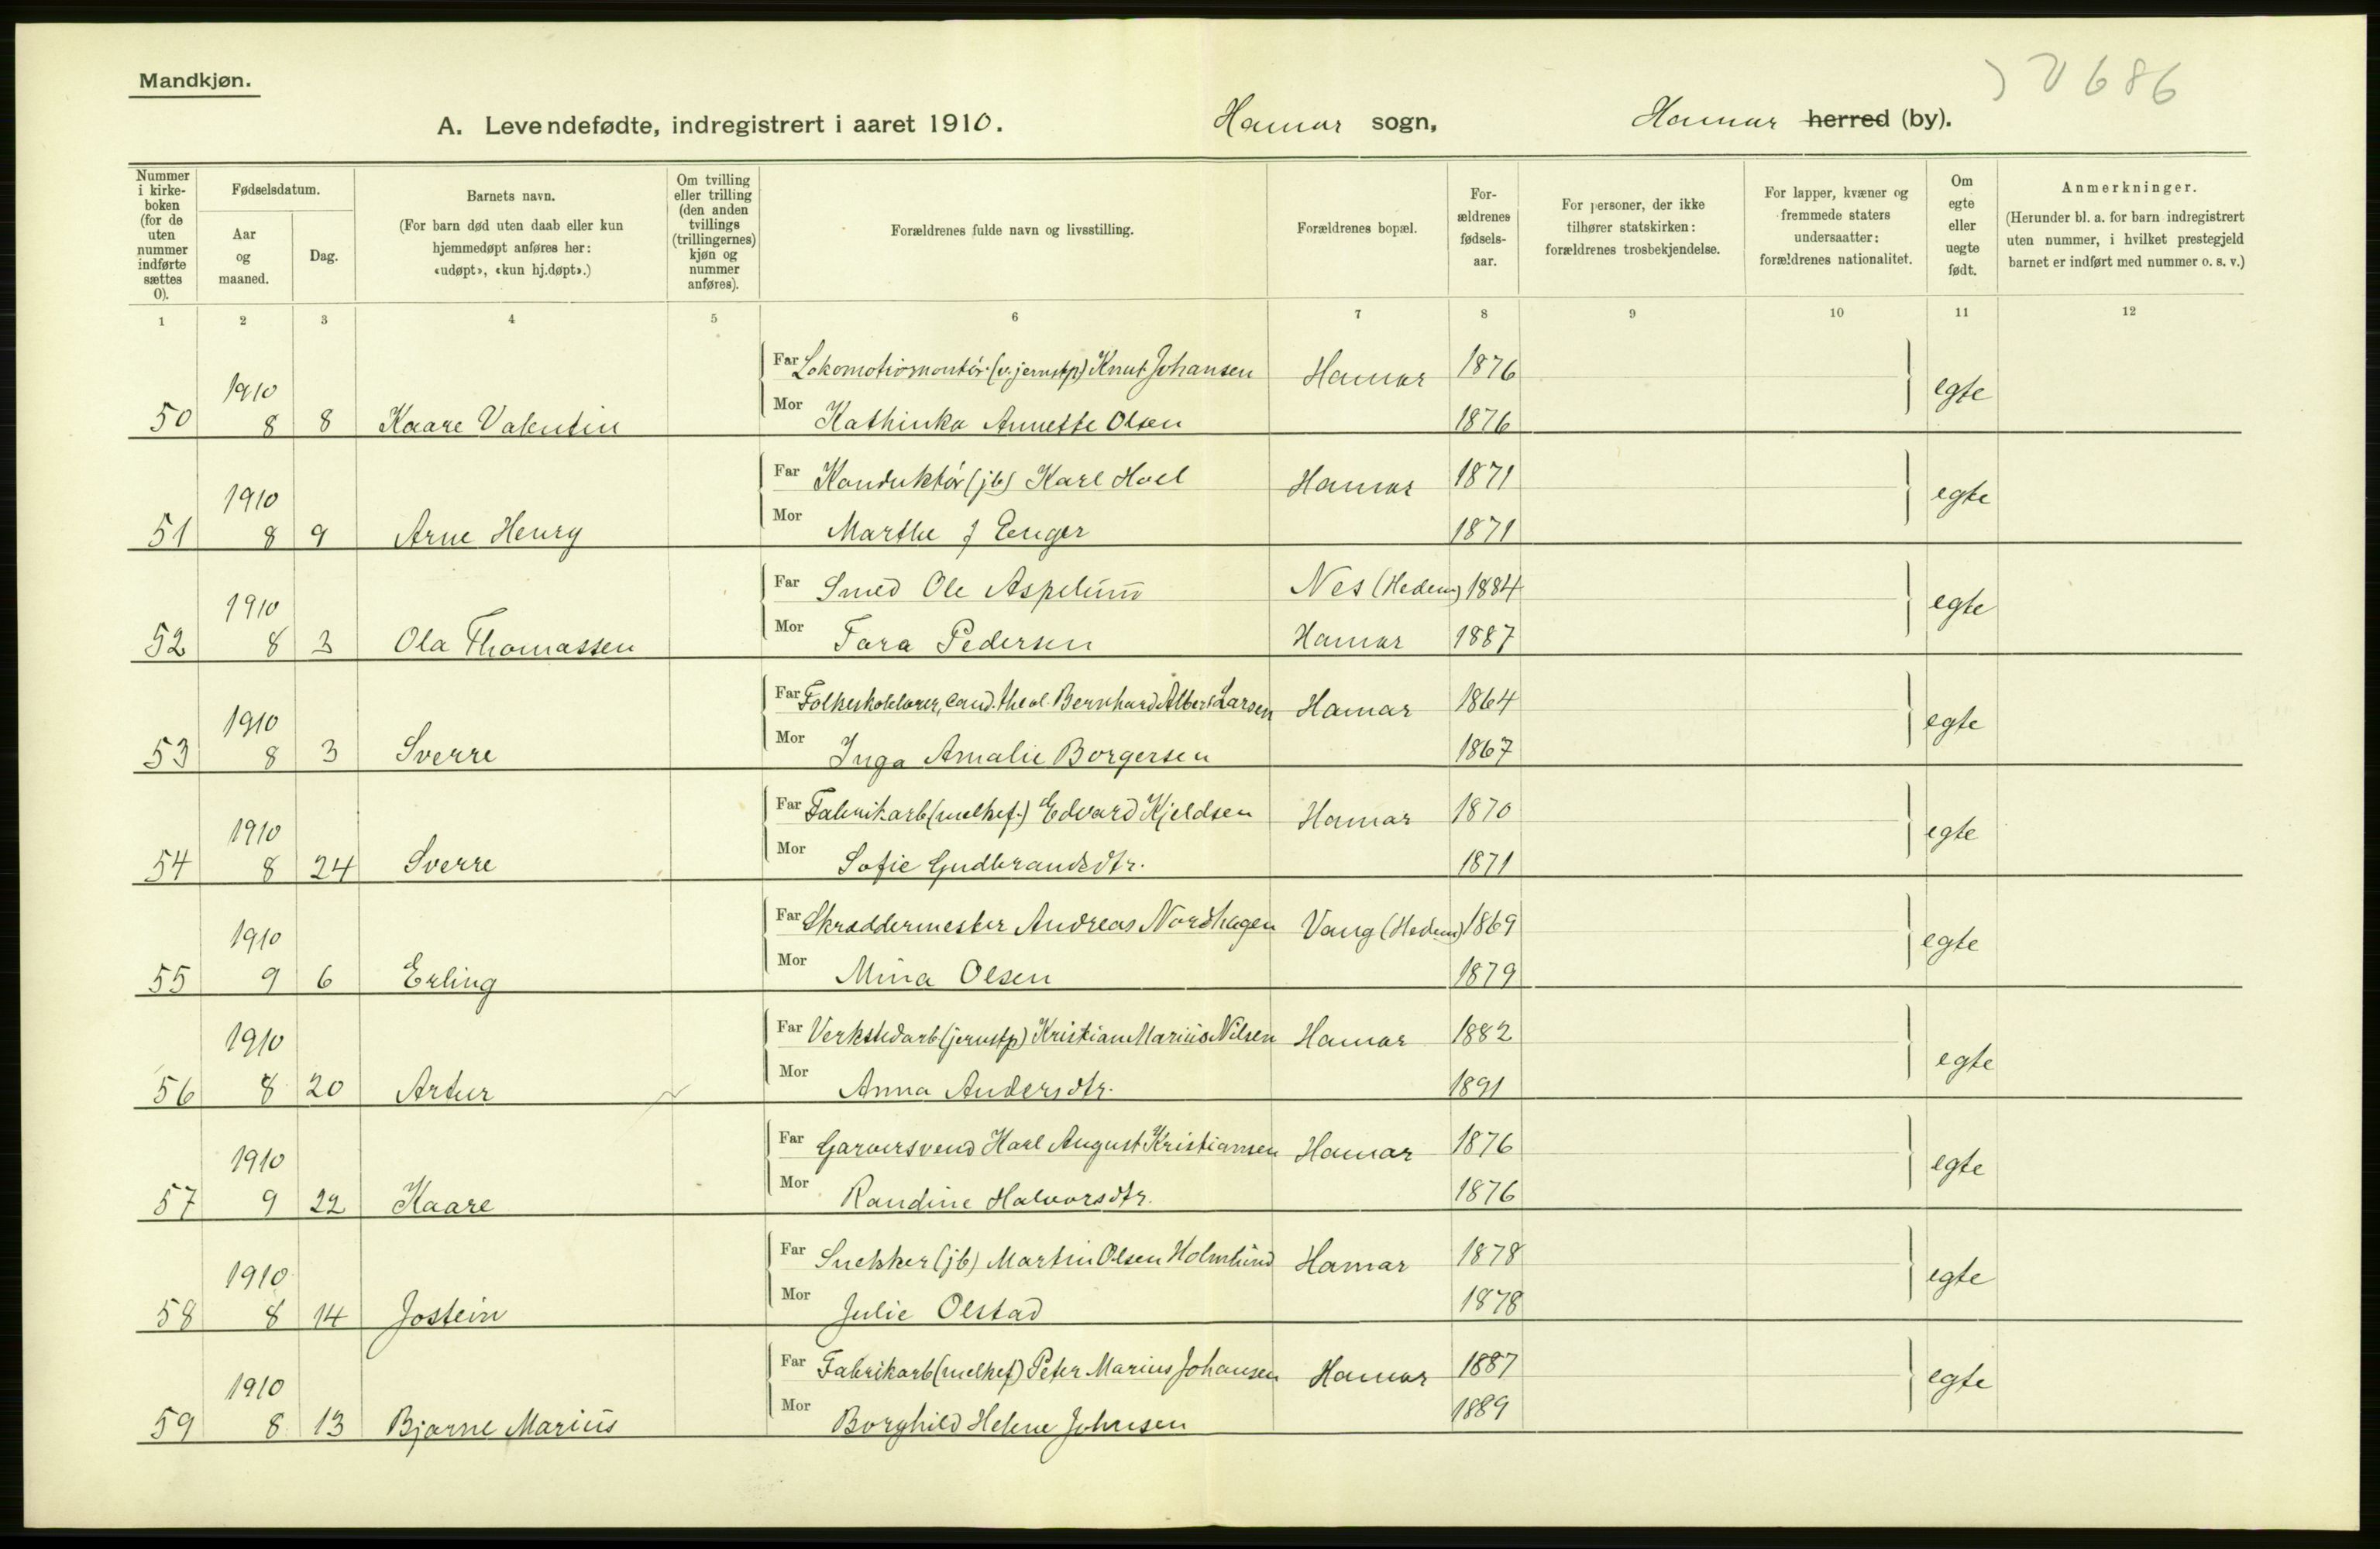 Mandkjøn.
J V 686
A. Levendefødte, indregistrert i aaret 1910. Hamar sogn, Hamar herred (by).
Nummer i kirke-boken (for de uten nummer indførte sættes 0).
Fødselsdatum.
Aar og maaned.
Dag.
Barnets navn.
(For barn død uten daab eller kun hjemmedøpt anføres her: «udøpt», «kun hj.døpt».)
Om tvilling eller trilling (den anden tvillings (trillingernes) kjøn og nummer anføres).
Forældrenes fulde navn og livsstilling.
Forældrenes bopæl.
For-ældrenes fødsels-aar.
For personer, der ikke tilhører statskirken: forældrenes trosbekjendelse.
For lapper, kvæner og fremmede staters undersaatter: forældrenes nationalitet.
Om egte eller uegte født.
Anmerkninger.
(Herunder bl. a. for barn indregistrert uten nummer, i hvilket prestegjeld barnet er indført med nummer o. s. v.)
1 2 3 4 5 6 7 8 9 10 11 12
Far Lokomotivmontör (v. jernstp) Knut Johansen Hamar 1876
1910 egte
50 8 8 Kaare Valentin Mor Kathinka Annette Olsen 1876
Far Konduktör (jb) Karl Hoel Hamar 1871
1910 egte
51 8 9 Arne Henry Mor Marthe J Enger 1871
Far Smed Ole Aspelund Nes (Hedem) 1884
1910 egte
52 8 3 Ola Thomassen Mor Tora Pedersen Hamar 1887
Far Folkeskolelærer, cand. theol. Bernhard Albert Larsen Hamar 1864
1910 egte
53 8 3 Sverre Mor Inga Amalie Borgersen 1867
Far Fabrikarb (melkef.) Edvard Kjeldsen Hamar 1870
1910 egte
54 8 24 Sverre Mor Sofie Gudbrandsdtr. 1871
Far Skræddermester Andreas Nordhagen Vang (Hedem) 1869
1910 egte
55 9 6 Erling Mor Mina Olsen 1879
Far Verkstedarb (jernstp) Kristian Marius Nilsen Hamar 1882
1910 egte
56 8 20 Artur Mor Anna Andersdtr. 1891
Far Garversvend Karl August Kristiansen Hamar 1876
1910 egte
57 9 22 Kaare Mor Randine Halvorsdtr. 1876
Far Snekker (jb) Martin Olsen Holmlund Hamar 1878
1910 egte
58 8 14 Jostein Mor Julie Olstad 1878
Far Fabrikarb (melkef) Peter Marius Johansen Hamar 1887
1910 egte
59 8 13 Bjarne Marius Mor Borghild Helene Johnsen 1889